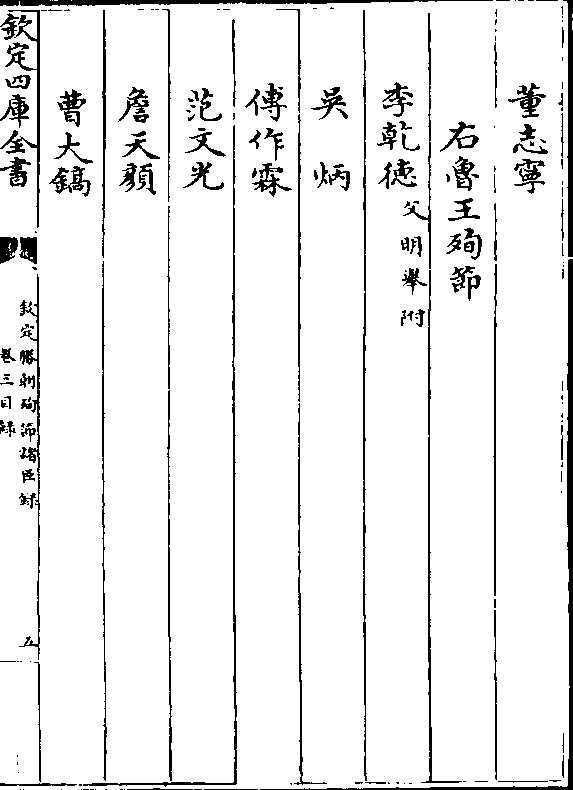 董志寧
右魯王殉節
李乾徳父明舉附
吳炳
傅作霖
范文光
詹天顏
曹大鎬
欽定四庫全書
欽定勝朝殉節諸臣録
卷三目録
五